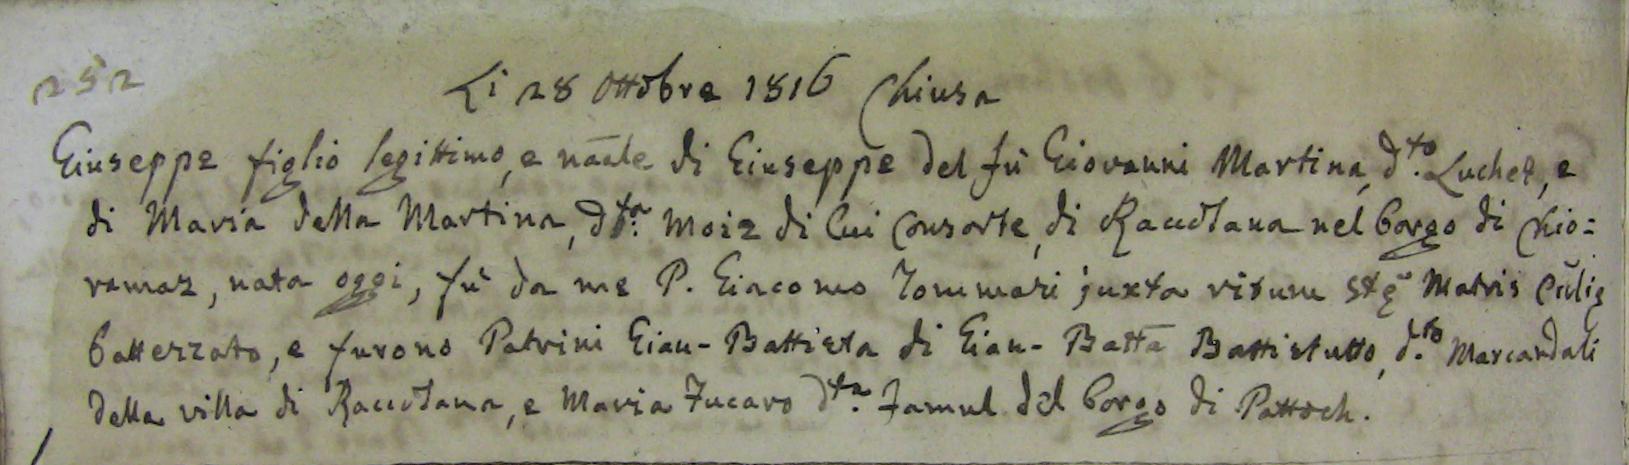 252
Li 28 Ottobre 1816 Chiusa
Giuseppe figlio legittimo, e nãale di Giuseppe del fu Giovanni Martina, d.to Luchez, e
di Maria della Martina, d.ta Moiz di lui Consorte, di Raccolana nel borgo di Chio=
ramaz, nata oggi, fù da me P. Giacomo Tommasi juxta ritum Stę Matris
battezzato, e furono Patrini Gian-Battista di Gian-Batta Battistutto, d.to Marcandali
della villa di Raccolana, e Maria Fucaro d.ta Zamul del borgo di Pattoch.